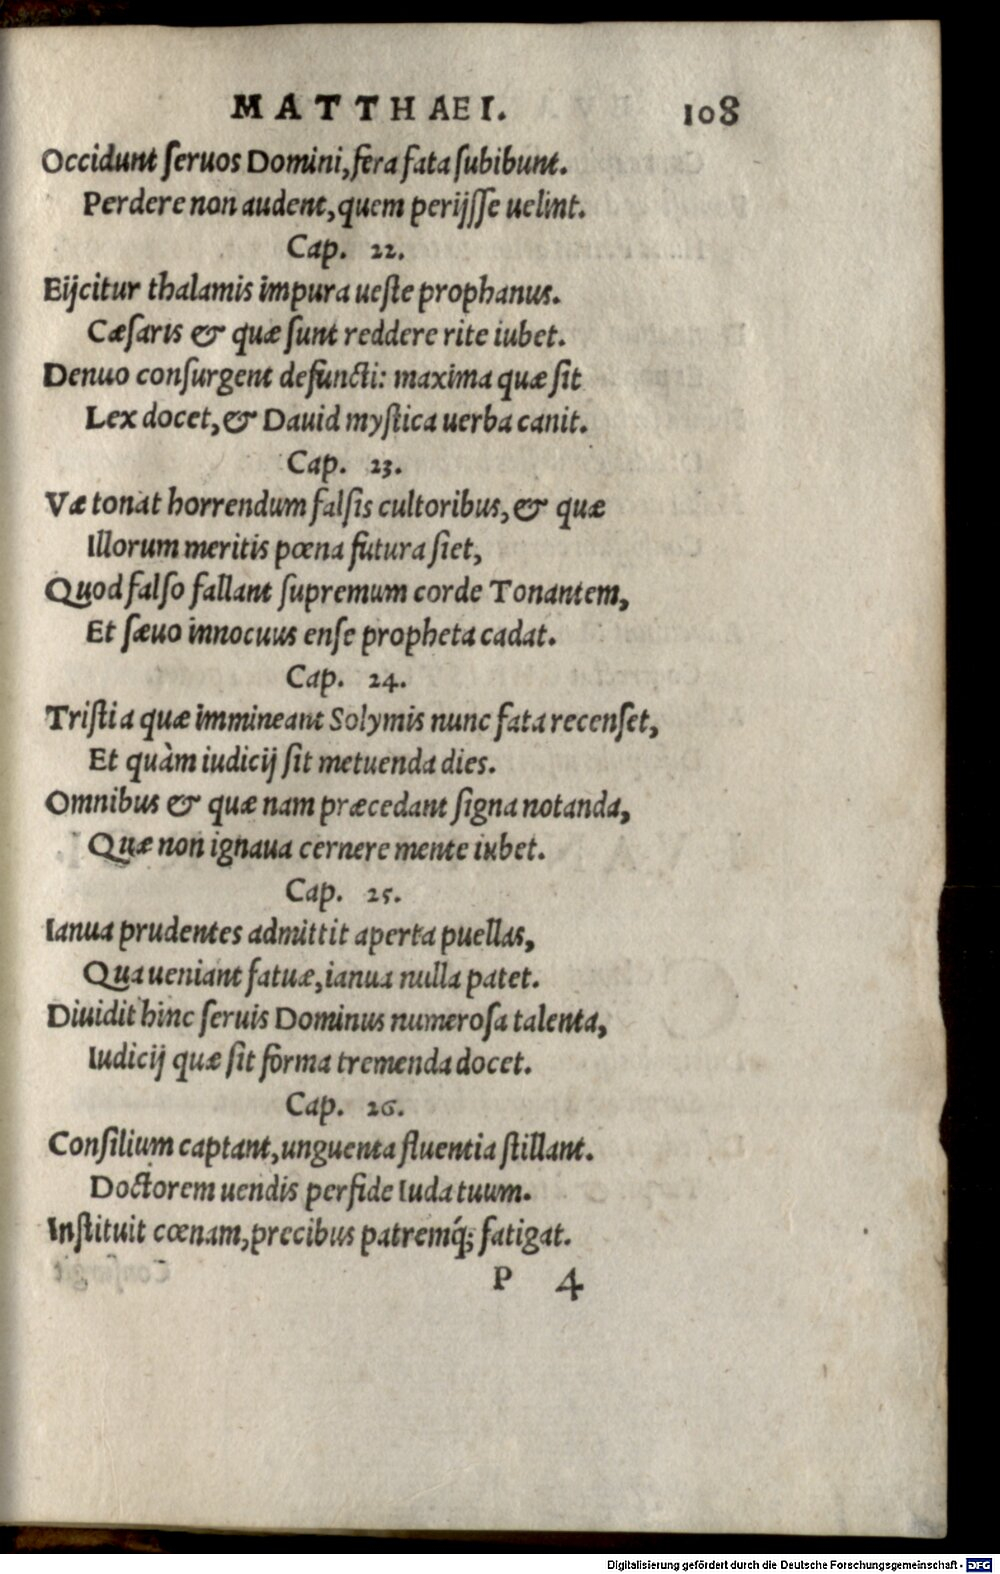 MATTHAEI. 108
Occidunt ſeruos Domini, fera fata ſubibunt.
Perdere non audent, quem perijſſe uelint.
Cap. 22.
Eijcitur thalamis impura ueſte prophanus.
Cæſaris & quæ ſunt reddere rite iubet.
Denuo conſurgent defuncti: maxima quæ ſit
Lex docet, & Dauid myſtica uerba canit.
Cap. 23.
Væ tonat horrendum falſis cultoribus, & quæ
Illorum meritis pœna futura ſiet,
Quod falſo fallant ſupremum corde Tonantem,
Et ſæuo innocuus enſe propheta cadat.
Cap. 24.
Triſtia quæ immineant Solymis nunc fata recenſet,
Et quàm iudicij ſit metuenda dies.
Omnibus & quæ nam præcedant ſigna notanda,
Quæ non ignaua cernere mente iubet.
Cap. 25.
Ianua prudentes admittit aperta puellas,
Qua ueniant fatuæ, ianua nulla patet.
Diuidit hinc ſeruis Dominus numeroſa talenta,
Iudicij quæ ſit forma tremenda docet.
Cap. 26.
Conſilium captant, unguenta fluentia ſtillant.
Doctorem uendis perfide Iuda tuum.
Inſtituit cœnam, precibus patremq́; fatigat.
P 4
Digitalisierung gefördert durch die Deutsche Forschungsgemeinschaft - DFG